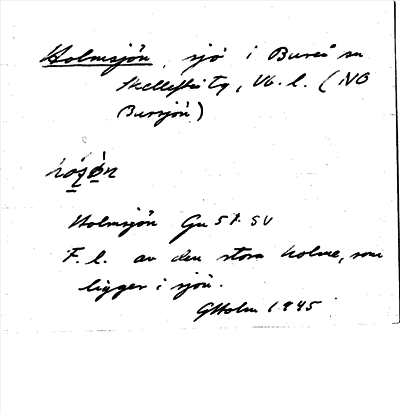 Holmsjön, sjö i Bureå sn
Skellefteå tg, Vb. l. (NO
Bursjön)
Holmsjön GuSt. SV
F. l. av den stora holme, som
ligger i sjön.
GHolm 1945